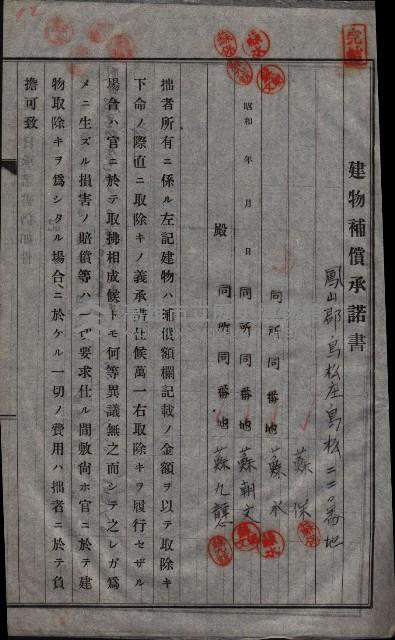 建物補償承諾書
鳳山郡鳥松庄鳥松二二〇番地
蘇保
同所同番地 蘇水
同所同番地 蘇朝文
同所同番地 蘇九
殿
昭和 年 月 日
拙者所有ニ係ル左記建物ハ補償額欄記載ノ金額ヲ以テ取除キ
下命ノ際直ニ取除キノ義承諾仕候萬一右取除キヲ履行セザル
場合ハ官ニ於テ取拂相成候トモ何等異議無之而シテ之レガ爲
メニ生ズル損害ノ賠償等ハ一切要求仕ル間敷尙ホ官ニ於テ建
物取除キヲ爲シタル場合ニ於ケル一切ノ費用ハ拙者ニ於テ負
擔可致